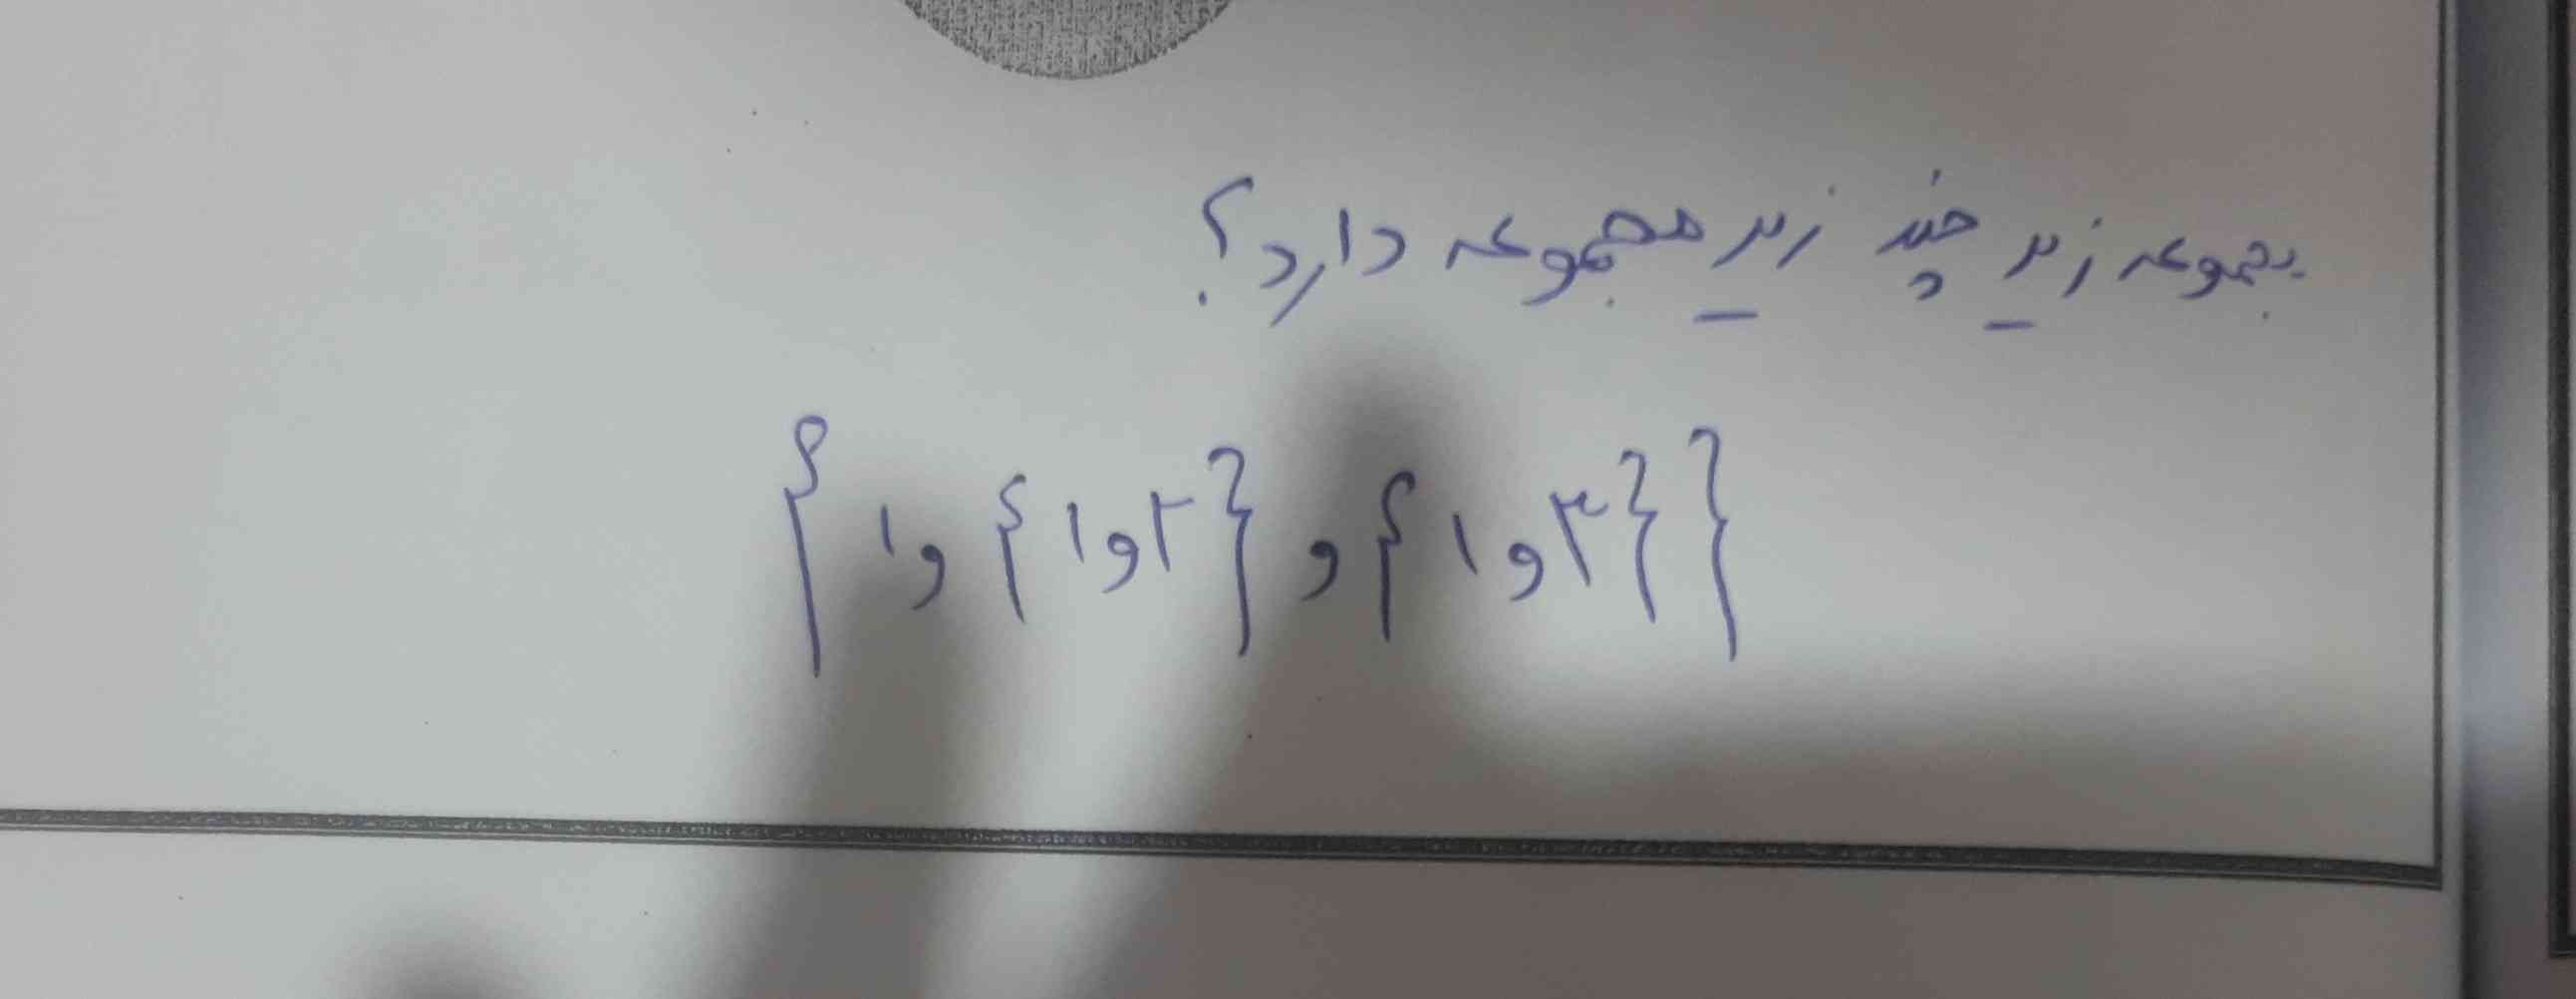 مجموعه زیر چند زیر مجموعه دارد؟
{ ۱ و { ۱ و ۲ } و { ۱ و ۳ } }